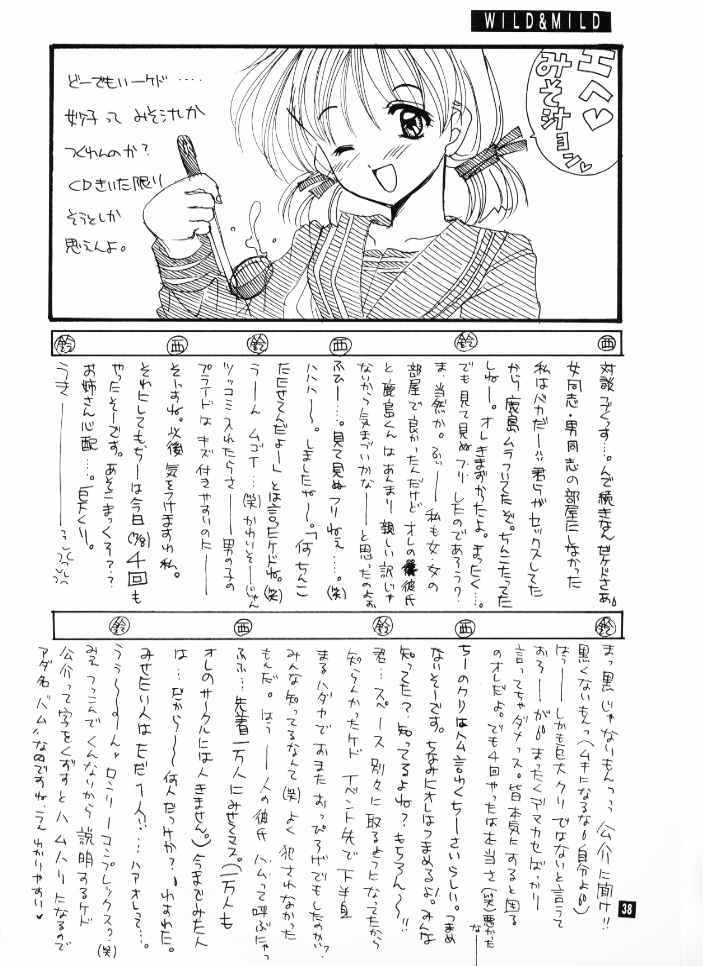 WILD&MILD
エヘ♡
みそ汁ョン♡
どーでもいーケド‥‥
妙子って みそ汁しか
つくれんのか?
CDきいた限り
そうとしか
思えんよ。
西
鈴
西
鈴
西
鈴
対談でぐっす…。んで続きなんぜケドさあ。
女同志・男同志の部屋だしなかった
私はバカだー 君らがセックスしてた
から鹿島ムラついてたぞ。ちんこたってた
しねー。オレきまずかったよ。まったく…。
でも見て見ぬフリしたのであろう?
ま、当然か。ふぃー私も女々の
部屋で良かったんだけど オレの彼氏
と鹿島くんはあんまり親しい訳じゃ
ないから気まづいかなーと思ったのよぉ
ふひー…。見て見ぬフリねぇ…。(笑)
ハハハー〜。しましたねー。「何ちんこ
たたせてんだよー」とは言ったケドね。(笑)
うーん ムゴイ…(笑)かわいそーじゃん
ツッコミ入れたらさー男の子の
プライドは キズ付きやすいのたー
そーすね。以後気をつけますわ私。
それにしてもちーは今日(7/8)4回も
やったそーです。あそこまっくろ??
お姉さん心配…。巨大くり。
うきー
鈴
西
鈴
西
鈴
まっ黒じゃないもんっっ 公介に聞け!!
黒くないもんっ(ムキになるな自分よ)
はぅーしかも巨大クリではないと言うて
おろーがまったくデマカセばっかり
言ってちゃダメっス。皆本気にすると困る
のオレだよ。でも4回やったは本当さ(笑)悪かったなー
ちーのクリはハム言わくちーさいらしい。つまめ
ないそーです。ちなみにオレはつまめるよ!みんな
知ってた?知ってるよね?もちろん〜〜!!
君…スペース別々に取るようになってたから
知らんかったケド イベント先で下半身
まるハダカでおまたおっぴろげでもしたのかい?
みんな知ってるなんて(笑)よく犯されなかった
もんだ。はぅー人の彼氏 ハムって呼ぶにゃっ
ふふ…先着一万人にみせてマス。(一万人も
オレのサークルには人きません。)今までみた人
は…だから〜〜何人だっけか?わすれた。
みせたい人はただ1人!…ハァオレって…。
うぅ〜〜。んゝロンリーコンプレックス?(笑)
みえつっこんでくんないから説明するケド
公介って字をくずすとハムハリになるので
アダ名"ハム"なのですね、うんわかりやすい♥
38